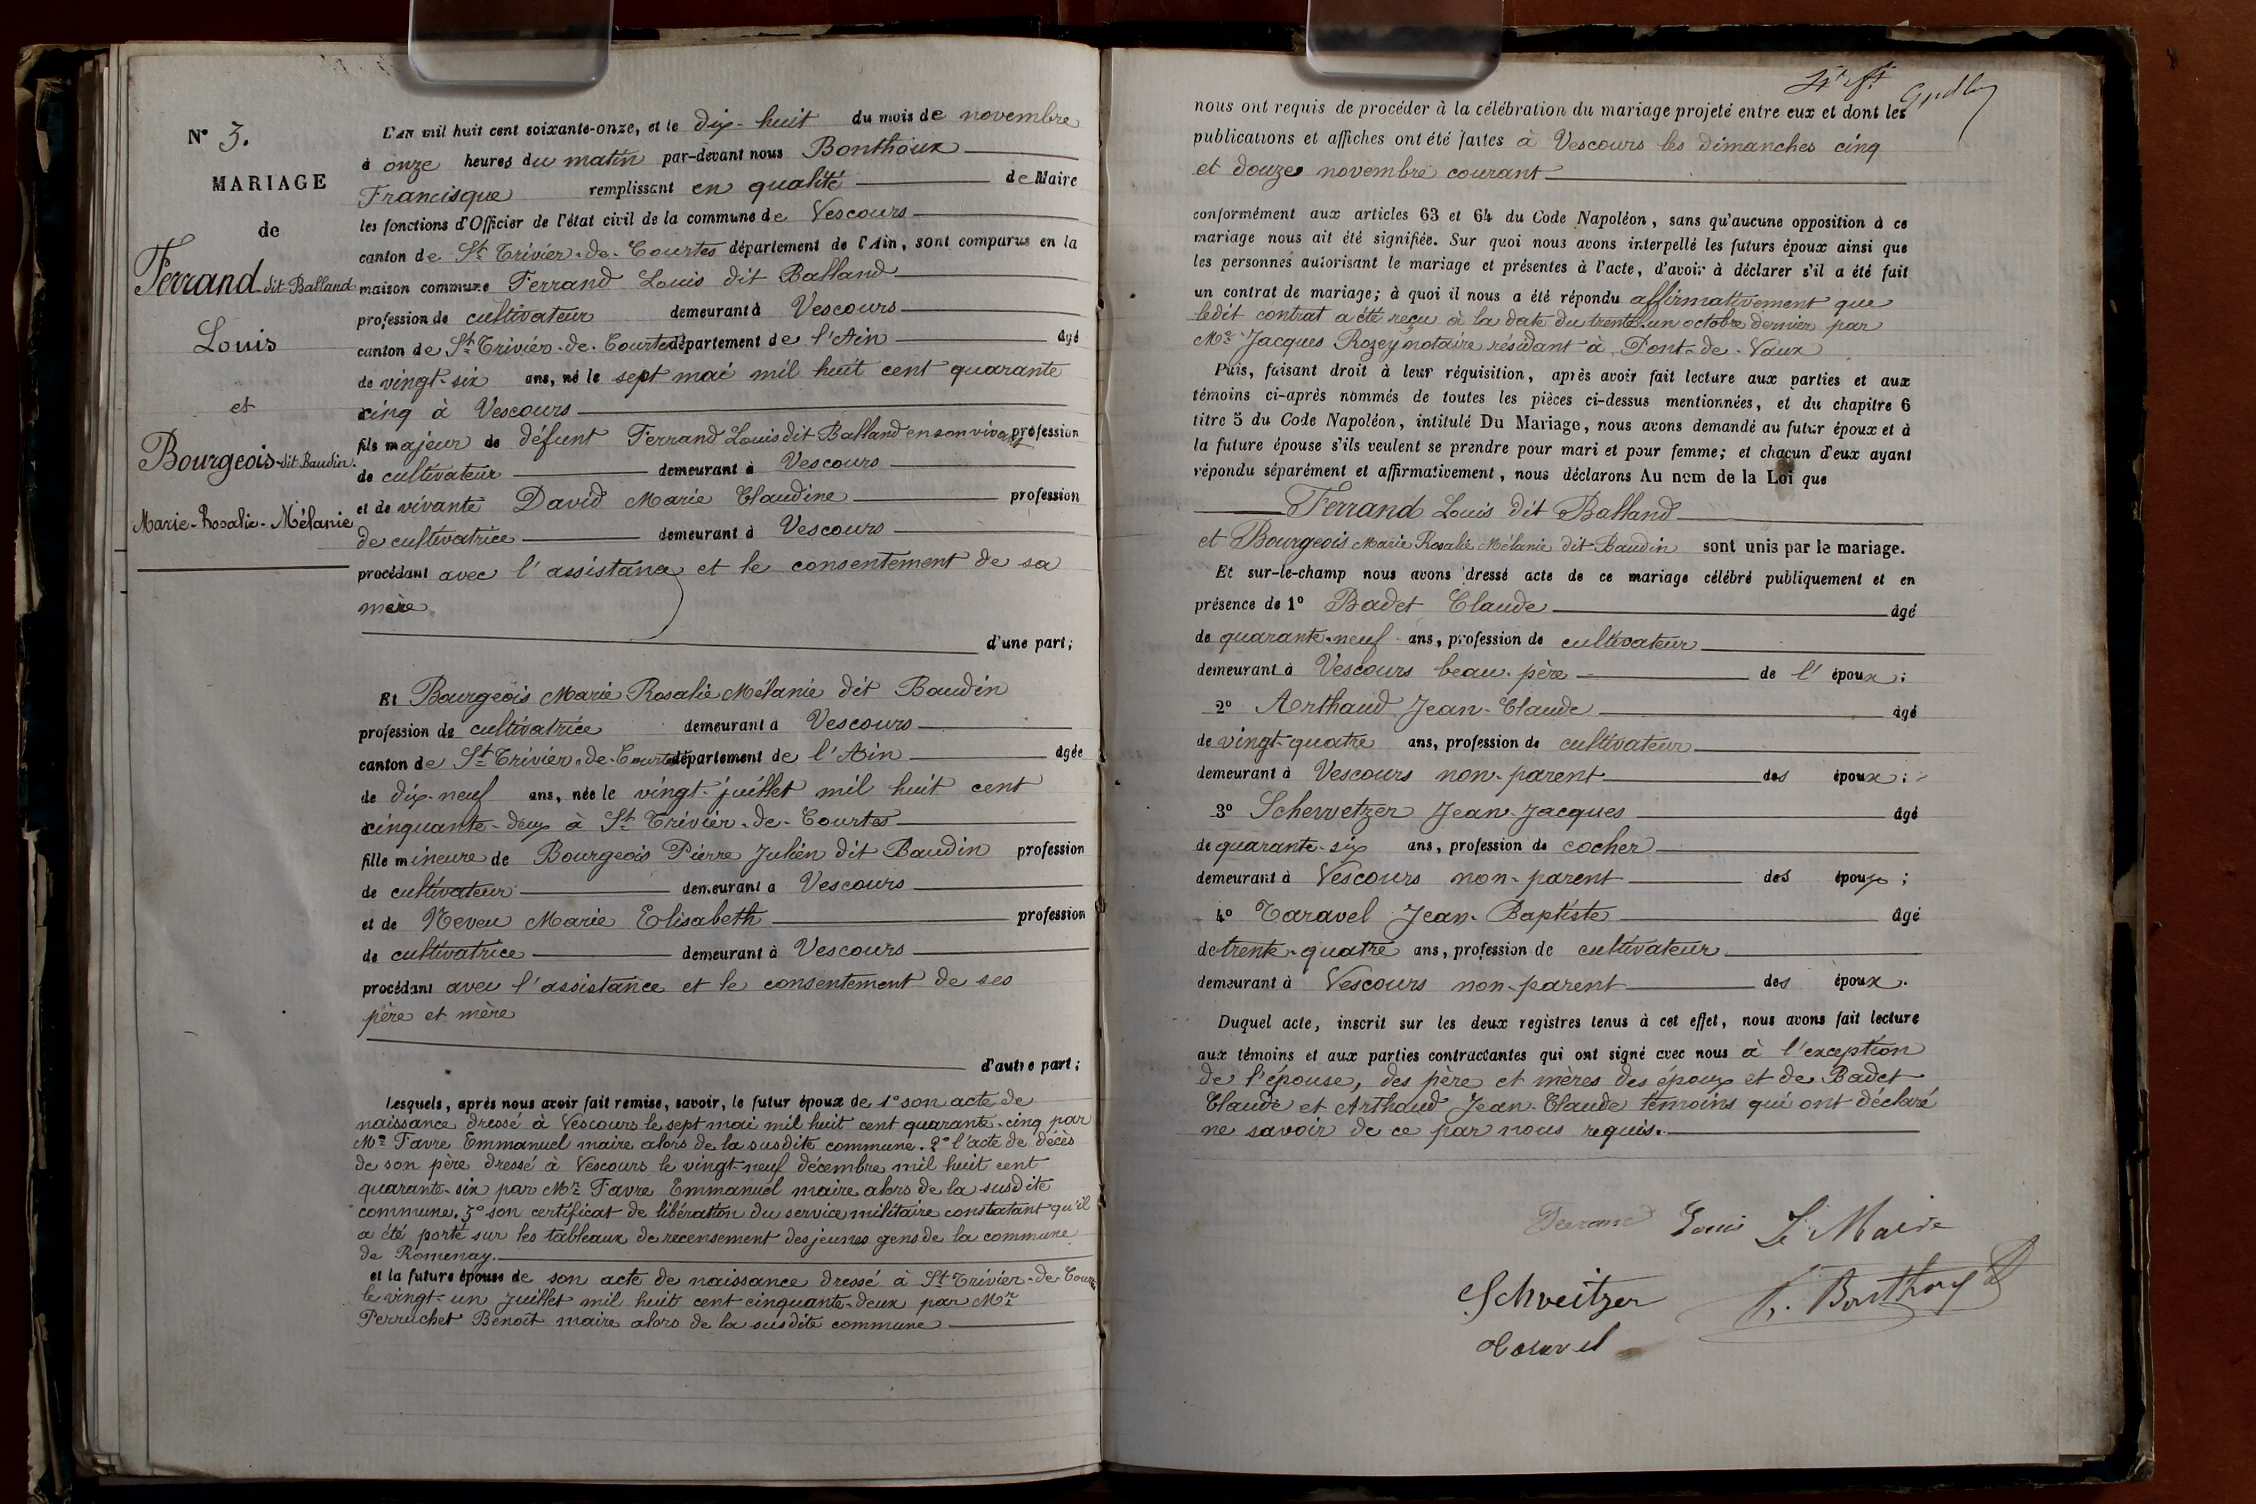 N° 3.
MARIAGE
de
Ferrand dit Balland
Louis
et
Bourgeois dit Baudin.
Marie-Rosalie-Mélanie
L'AN mil huit cent soixante-onze, et le dix-huit du mois de novembre
à onze heures du matin par-devant nous Bonthoux
Francisque remplissant en qualité de Maire
les fonctions d'Officier de l'état civil de la commune de Vescours
canton de St Trivier-de-Courtes département de l'Ain, sont comparus en la
maison commune Ferrand Louis dit Balland
profession de cultivateur demeurant à Vescours
canton de St Trivier-de-Courtes département de l'Ain âgé
de vingt-six ans, né le sept mai mil huit cent quarante
cinq à Vescours
fils majeur de défunt Ferrand Louis dit Balland en son vivant profession
de cultivateur demeurant à Vescours
et de vivante David Marie Claudine profession
de cultivatrice demeurant à Vescours
procédant avec l'assistance et le consentement de sa
mère
d'une part;
Et Bourgeois Marie Rosalie Mélanie dit Baudin
profession de cultivatrice demeurant à Vescours
canton de St Trivier-de-Courtes département de l'Ain âgée
de dix-neuf ans, née le vingt juillet mil huit cent
cinquante-deux à St Trivier-de-Courtes
fille mineure de Bourgeois Pierre Julien dit Baudin profession
de cultivateur demeurant à Vescours
et de Neveu Marie Elisabeth profession
de cultivatrice demeurant à Vescours
procédant avec l'assistance et le consentement de ses
père et mère
d'autre part;
Lesquels, après nous avoir fait remise, savoir, le futur époux de 1° son acte de
naissance dressé à Vescours le sept mai mil huit cent quarante-cinq par
Mr Favre Emmanuel maire alors de la susdite commune. 2° l'acte de décès
de son père dressé à Vescours le vingt-neuf décembre mil huit cent
quarante-six par Mr Favre Emmanuel maire alors de la susdite
commune. 3° son certificat de libération du service militaire constatant qu'il
a été porté sur les tableaux de recensement des jeunes gens de la commune
de Romenay.
et la future épouse de son acte de naissance dressé à St Trivier-de-Courtes
le vingt-un juillet mil huit cent cinquante-deux par Mr
Perruchet Benoit maire alors de la susdite commune
nous ont requis de procéder à la célébration du mariage projeté entre eux et dont les
publications et affiches ont été faites à Vescours les dimanches cinq
et douze novembre courant
conformément aux articles 63 et 64 du Code Napoléon, sans qu'aucune opposition à ce
mariage nous ait été signifiée. Sur quoi nous avons interpellé les futurs époux ainsi que
les personnes autorisant le mariage et présentes à l'acte, d'avoir à déclarer s'il a été fait
un contrat de mariage; à quoi il nous a été répondu affirmativement que
ledit contrat a été reçu à la date du trente-un octobre dernier par
Me Jacques Rozey notaire résidant à Pont-de-Vaux
Puis, faisant droit à leur réquisition, après avoir fait lecture aux parties et aux
témoins ci-après nommés de toutes les pièces ci-dessus mentionnées, et du chapitre 6
titre 5 du Code Napoléon, intitulé Du Mariage, nous avons demandé au futur époux et à
la future épouse s'ils veulent se prendre pour mari et pour femme; et chacun d'eux ayant
répondu séparément et affirmativement, nous déclarons Au nom de la Loi que
Ferrand Louis dit Balland
et Bourgeois Marie Rosalie Mélanie dit Baudin sont unis par le mariage.
Et sur-le-champ nous avons dressé acte de ce mariage célébré publiquement et en
présence de 1° Badet Claude âgé
de quarante-neuf ans, profession de cultivateur
demeurant à Vescours beau-père de l'époux;
2° Arthaud Jean-Claude âgé
de vingt-quatre ans, profession de cultivateur
demeurant à Vescours non-parent des époux;
3° Schewetzer Jean-Jacques âgé
de quarante-six ans, profession de cocher
demeurant à Vescours non-parent des époux;
4° Taravel Jean-Baptiste âgé
de trente-quatre ans, profession de cultivateur
demeurant à Vescours non-parent des époux.
Duquel acte, inscrit sur les deux registres tenus à cet effet, nous avons fait lecture
aux témoins et aux parties contractantes qui ont signé avec nous à l'exception
de l'épouse, des père et mères des époux et de Badet
Claude et Arthaud Jean-Claude témoins qui ont déclaré
ne savoir de ce par nous requis.
Ferrand Louis Le Maire
Schveitzer F. Bonthoux
Taravel